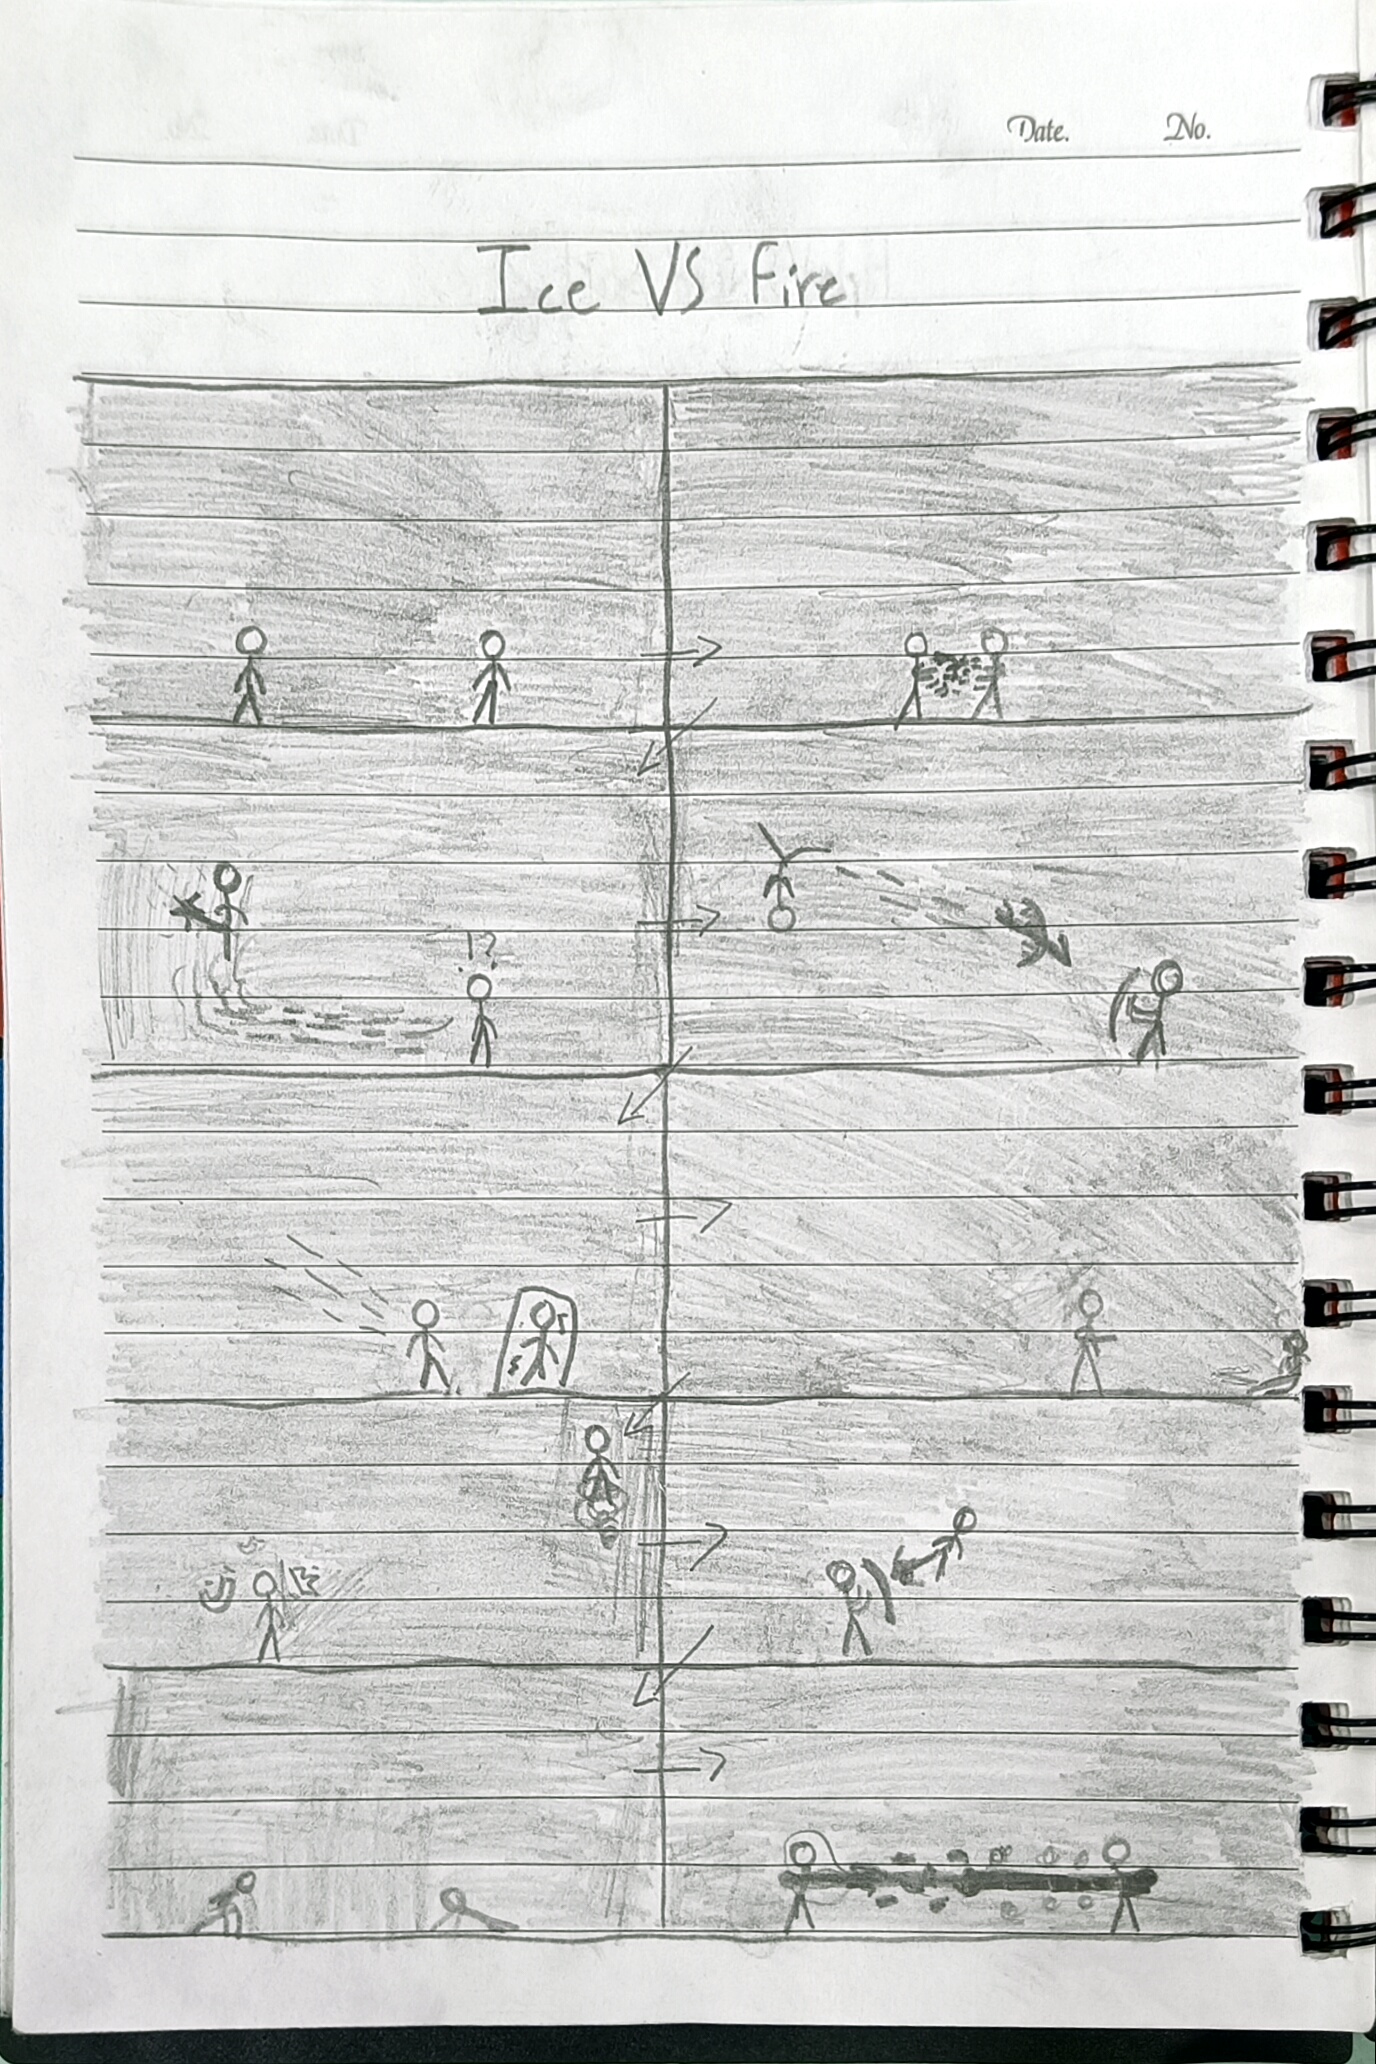 Date. No.
Ice VS Fire
!?